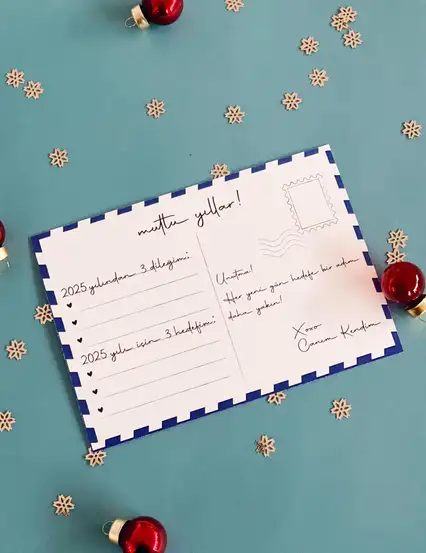 mutlu yıllar!
2025 yılından 3 dileğim:
2025 yılı için 3 hedefim:
Unutma!
Her yeni gün hedefe bir adım
daha yakın!
Xoxo
Canım Kendim